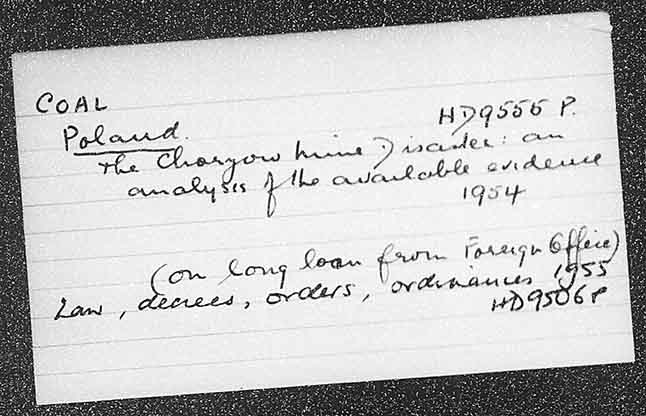 COAL
HD9555 P.
Poland.
The Chorzow Mine Disaster: an
analysis of the available evidence
1954
(on long loan from Foreign Office)
Law, decrees, orders, ordinances 1955
HD9506 P